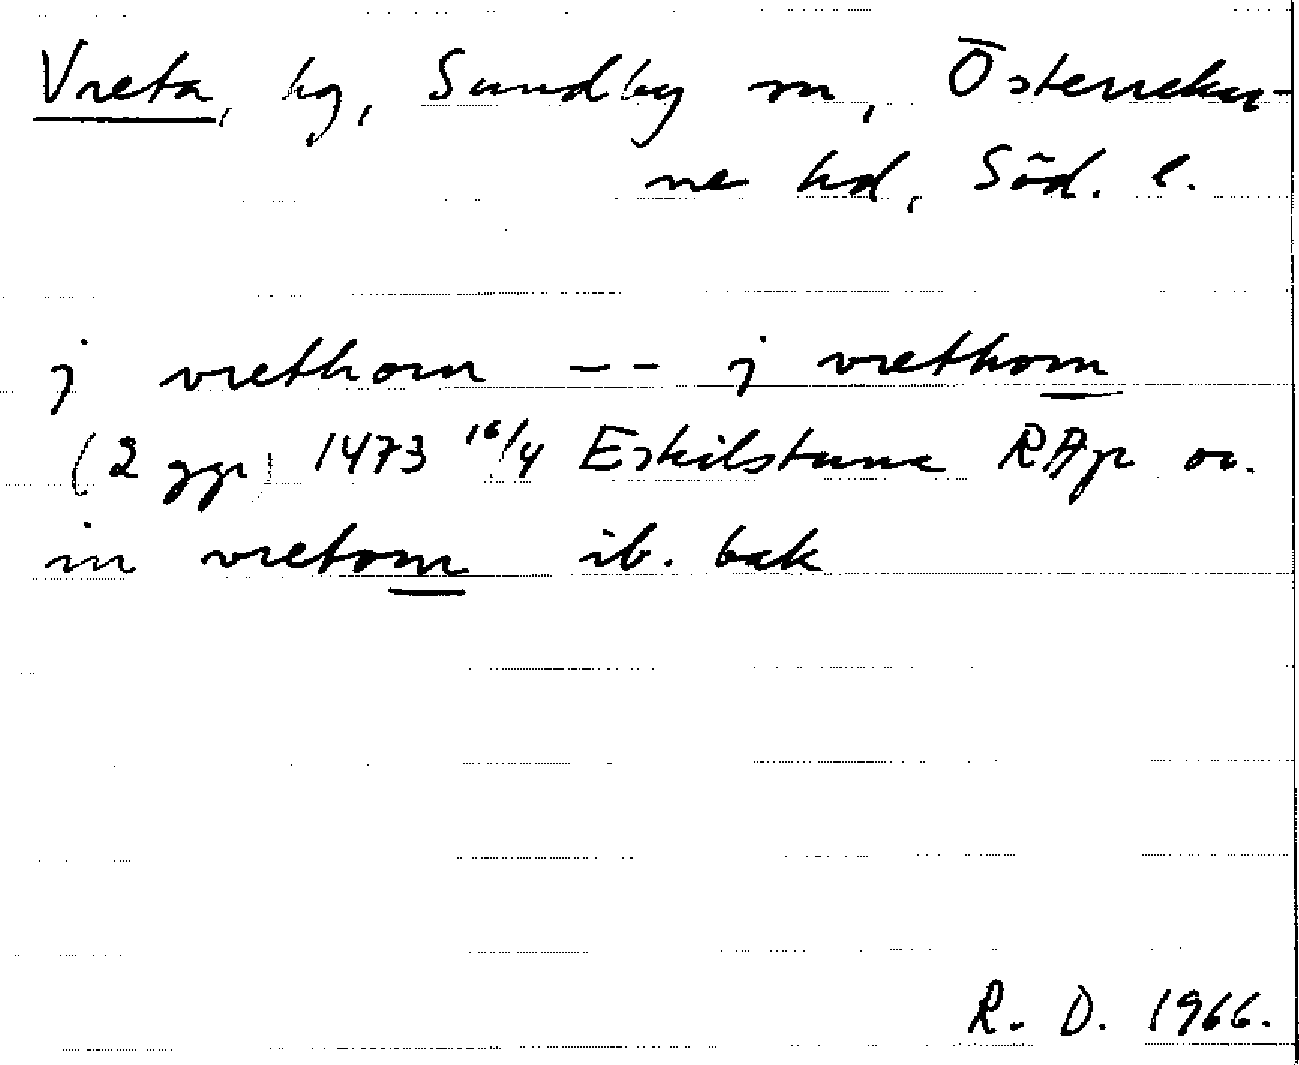 Vreta, hg, Sundby sn, Österrekar-
ne hd, Söd. l.
j vrethom -- j vrethom
(2 ggr) 1473 16/4 Eskilstuna RAp or.
in vretom ib. bak
R. D. 1966.